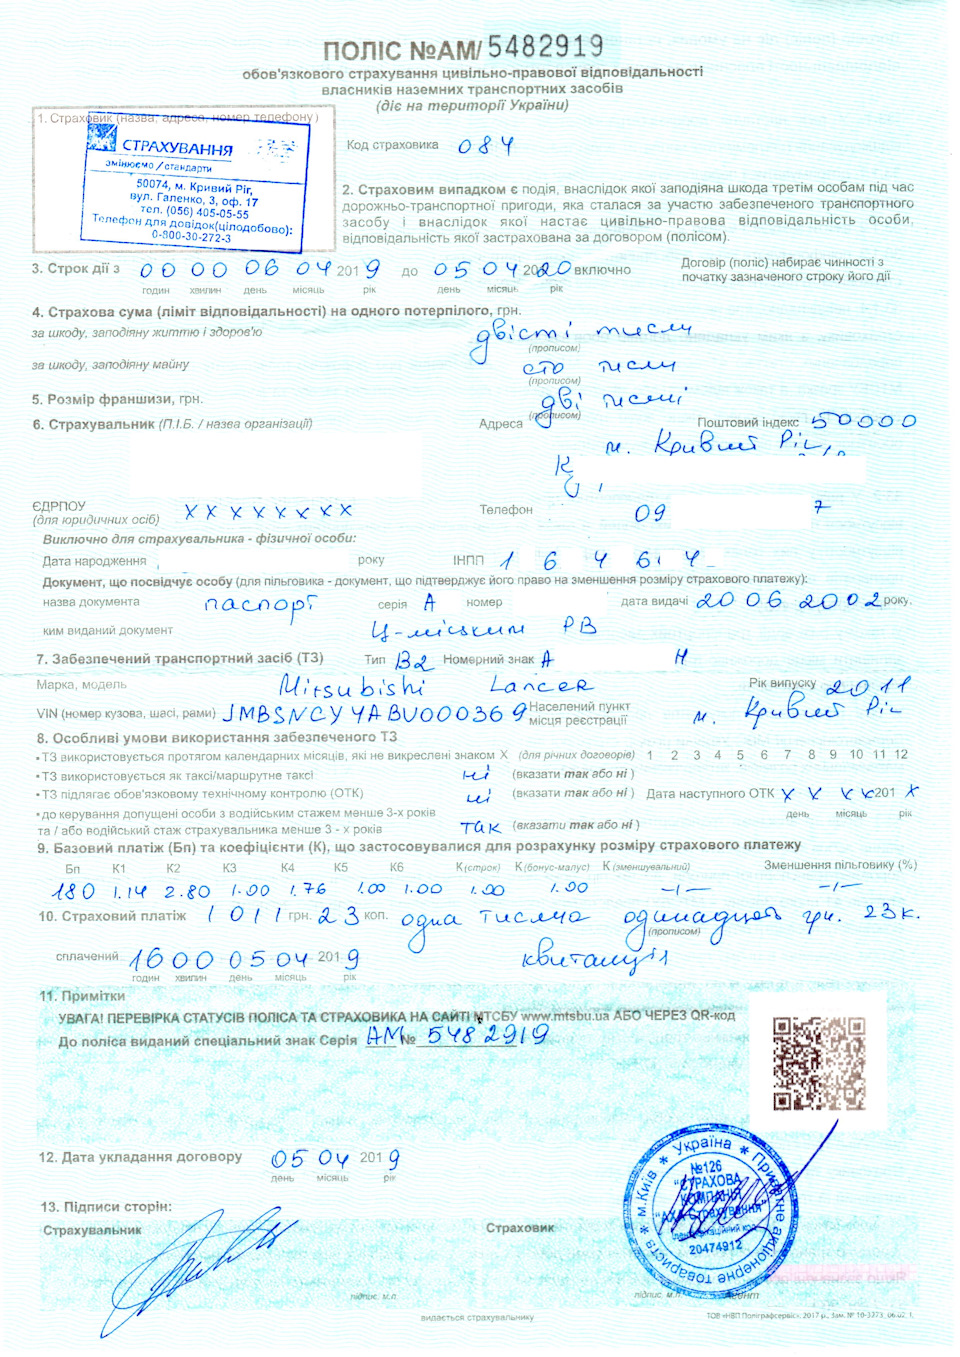 ПОЛІС №АМ/ 5482919
обов'язкового страхування цивільно-правової відповідальності
власників наземних транспортних засобів
(діє на території України)
1. Страховик (назва, адреса, номер телефону)
СТРАХУВАННЯ
змінюємо / стандарти
50074, м. Кривий Ріг,
вул. Галенко, 3, оф. 17
тел. (056) 405-05-55
Телефон для довідок(цілодобово):
0-800-30-272-3
Код страховика 084
2. Страховим випадком є подія, внаслідок якої заподіяна шкода третім особам під час
дорожньо-транспортної пригоди, яка сталася за участю забезпеченого транспортного
засобу і внаслідок якої настає цивільно-правова відповідальність особи,
відповідальність якої застрахована за договором (полісом)
3. Строк дії з 00 00 06 04 2019 до 05 04 2020 включно
Договір (поліс) набирає чинності з
початку зазначеного строку його дії
годин хвилин день місяць рік день місяць рік
4. Страхова сума (ліміт відповідальності) на одного потерпілого, грн.
за шкоду, заподіяну життю і здоров'ю двісті тисяч
(прописом)
за шкоду, заподіяну майну сто тисяч
(прописом)
5. Розмір франшизи, грн. дві тисячі
(прописом)
6. Страхувальник (П.І.Б. / назва організації) Адреса Поштовий індекс 50000
м. Кривий Ріг
К
ЄДРПОУ
(для юридичних осіб) X X X X X X X X Телефон 09 7
Виключно для страхувальника - фізичної особи:
Дата народження року ІНПП 1 6 4 6 4
Документ, що посвідчує особу (для пільговика - документ, що підтверджує його право на зменшення розміру страхового платежу):
назва документа паспорт серія А номер дата видачі 20 06 2002 року.
ким виданий документ Ц-міським РВ
7. Забезпечений транспортний засіб (ТЗ) Тип В2 Номерний знак А Н
Марка, модель Mitsubishi Lancer Рік випуску 2011
VIN (номер кузова, шасі, рами) JMBSNCY4ABU000369 Населений пункт
місця реєстрації м. Кривий Ріг
8. Особливі умови використання забезпеченого ТЗ
▪ ТЗ використовується протягом календарних місяців, які не викреслені знаком X (для річних договорів) 1 2 3 4 5 6 7 8 9 10 11 12
▪ ТЗ використовується як таксі/маршрутне таксі ні (вказати так або ні )
▪ ТЗ підлягає обов'язковому технічному контролю (ОТК) ні (вказати так або ні ) Дата наступного ОТК X X X X 201 X
день місяць рік
▪ до керування допущені особи з водійським стажем менше 3-х років
та / або водійський стаж страхувальника менше 3 - х років так (вказати так або ні )
9. Базовий платіж (Бп) та коефіцієнти (К), що застосовувалися для розрахунку розміру страхового платежу
Бп К1 К2 К3 К4 К5 К6 К (строк) К (бонус-малус) К (зменшувальний) Зменшення пільговику (%)
180 1.14 2.80 1.00 1.76 1.00 1.00 1.00 1.00 -/- -/-
10. Страховий платіж 1011 грн. 23 коп. одна тисяча одинадцять грн. 23 к.
(прописом)
сплачений 16 00 05 04 2019 квитанція
годин хвилин день місяць рік
11. Примітки
УВАГА! ПЕРЕВІРКА СТАТУСІВ ПОЛІСА ТА СТРАХОВИКА НА САЙТІ МТСБУ www.mtsbu.ua АБО ЧЕРЕЗ QR-код
До поліса виданий спеціальний знак Серія АМ № 5482919
12. Дата укладання договору 05 04 2019
день місяць рік
13. Підписи сторін:
Страхувальник Страховик
Україна * Приватне акціонерне товариство * м.Київ *
№126
"СТРАХОВА
КОМПАНІЯ
"АХА Страхування"
Ідентифікаційний код
20474912
підпис, м.п. підпис, м.п.
видається страхувальнику
ТОВ «НВП Поліграфсервіс», 2017 р., Зам. № 10-3273_06.02.1.